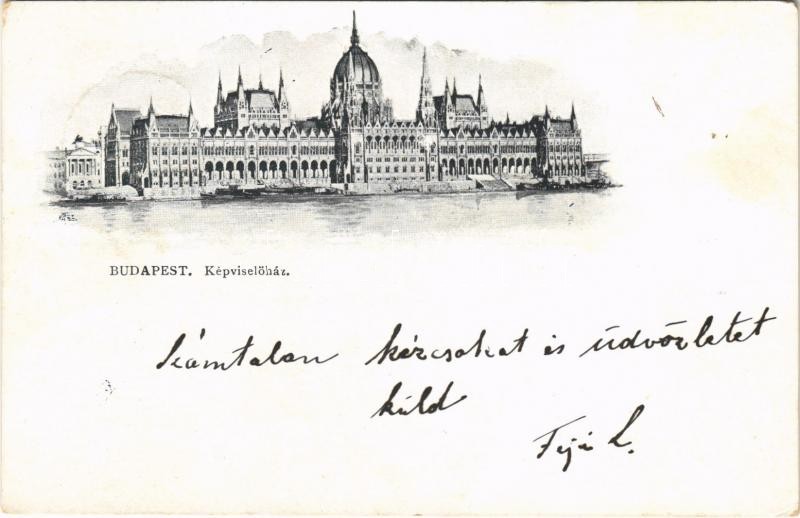 BUDAPEST. Képviselőház.
Számtalan kézcsókat és üdvözletet
küld
L.